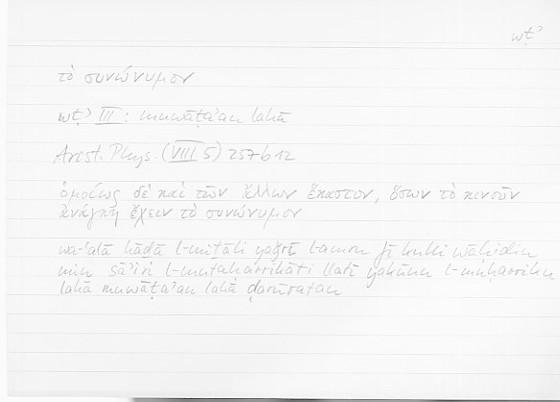 wṭʾ
τὸ συνώνυμον
wṭʾ III : muwāṭaʾan lahā
Arist. Phys. (VIII 5) 257 b 12
ὁμοίως δὲ καὶ τῶν ἄλλων ἕκαστον, ὅσων τὸ κινοῦν
ἀνάγκη ἔχειν τὸ συνώνυμον
wa-ʿalā hāḏā l-miṯāli yaǧrī l-amru fī kulli wāḥidin
min sāʾiri l-mutaḥarrikāti llatī yakūnu l-muḥarriku
lahā muwāṭaʾan lahā ḍarūratan